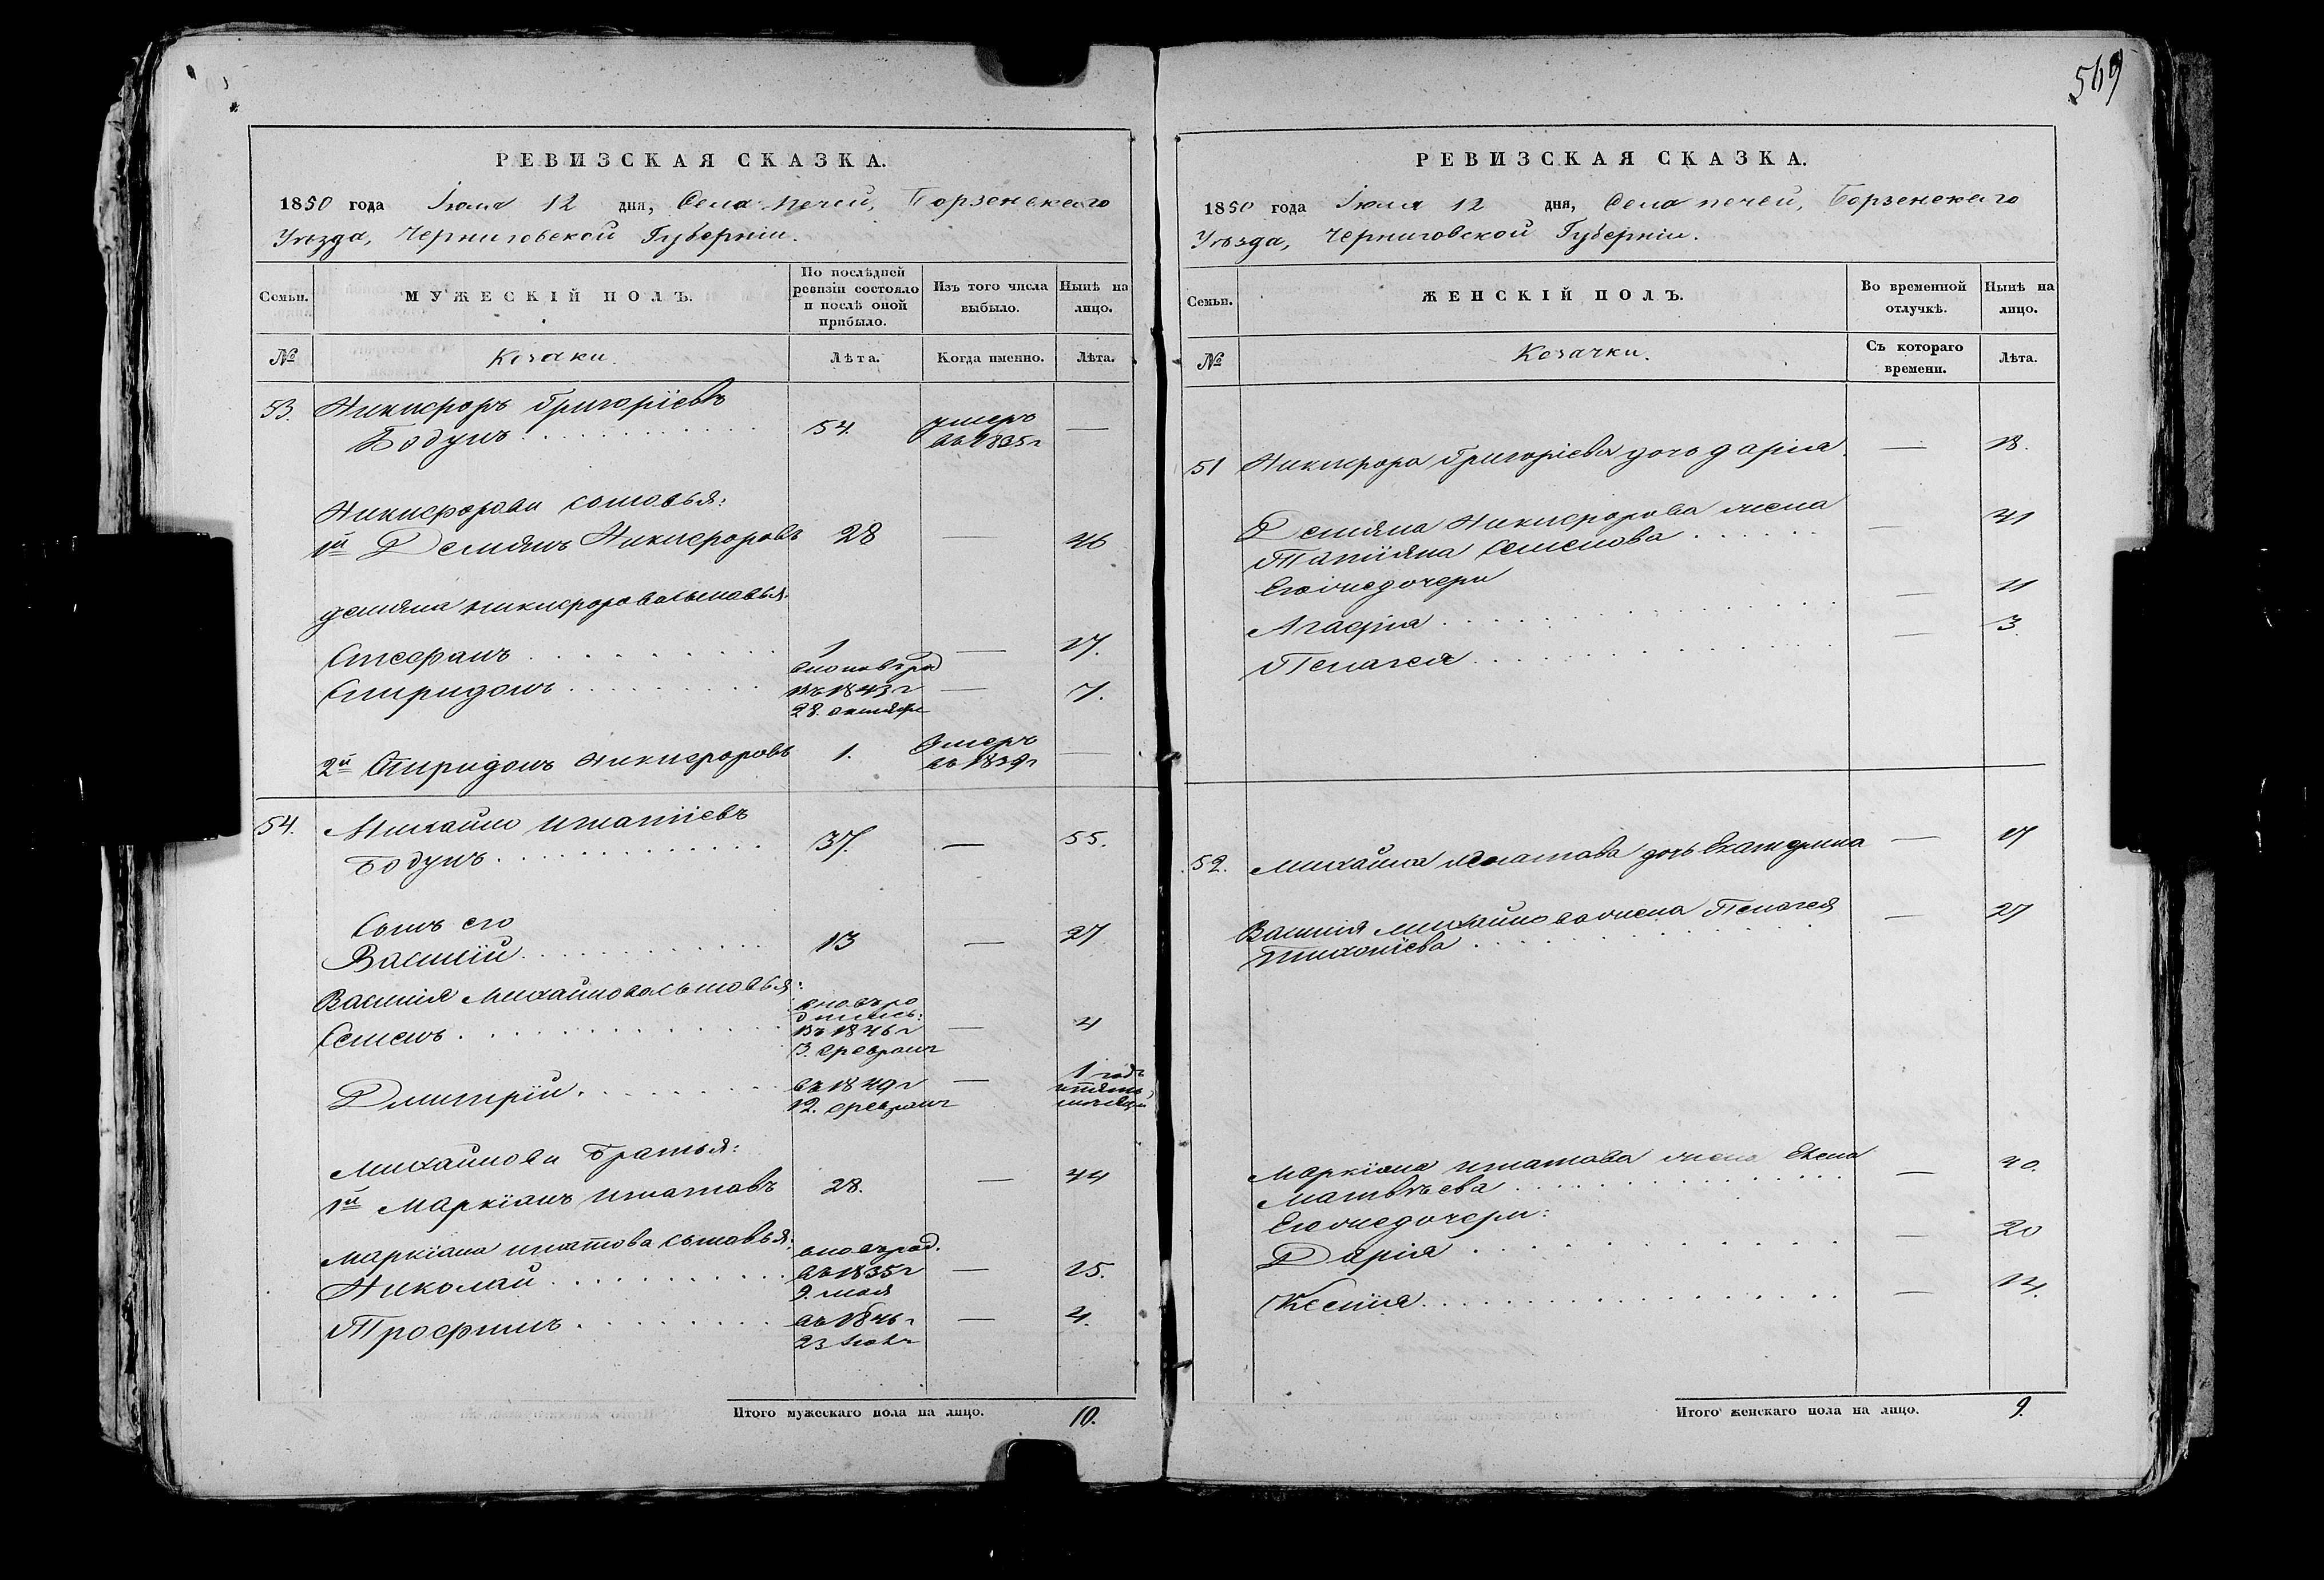 569
РЕВИЗСКАЯ СКАЗКА.
1850 года Іюля 12 дня, Села Печей, Борзенскаго
Уѣзда, Черниговской Губерніи.
Семьи.
МУЖЕСКІЙ ПОЛЪ.
По послѣдней ревизіи состояло и послѣ оной прибыло.
Изъ того числа выбыло.
Нынѣ на лицо.
№
Козаки.
Лѣта.
Когда именно.
Лѣта.
53. Никифоръ Григоріевъ
Бодунъ . . . 54. умеръ
въ 1835 г —
Никифорови сыновья:
1й Деміянъ Никифоровъ 28 — 46
Деміяна Никифорова сыновья:
Стефанъ . . . 1 — 17.
Спиридонъ . . . вновь род
въ 1843 г — 7.
28. октября
2й Спиридонъ Никифоровъ 1. Умеръ
въ 1839 г —
54. Михайло Игнатіевъ
Бодунъ . . . 37. — 55.
Сынъ его
Василій . . . 13 — 27
Василія Михайлова сыновья:
Семенъ . . . вновь ро
дились:
въ 1846 г — 4
3. февраля
Дмитрій . . . въ 1849 г — 1 годъ
12. февраля
Михайлови братья:
1й Маркіанъ Игнатовъ 28. — 44
Маркіана Игнатова сыновья: вновь род.
Николай . . . въ 1835 г — 15.
9. мая
Трофимъ . . . въ 1846 г — 4.
Итого мужескаго пола на лицо. 10.
РЕВИЗСКАЯ СКАЗКА.
1850 года Іюля 12 дня, Села Печей, Борзенскаго
Уѣзда, Черниговской Губерніи.
Семьи.
ЖЕНСКІЙ ПОЛЪ.
Во временной отлучкѣ.
Нынѣ на лицо.
№
Козачки.
Съ котораго времени.
Лѣта.
51 Никифора Григоріева дочь Дарія — 18.
Деміяна Никифорова жена
Татіяна Семенова . . . — 41
Его же дочери
Агафія . . . — 11
Пелагея . . . — 3.
52. Михайла Игнатова дочь Екатерина — 17
Василія Михайлова жена Пелагея — 27
Тихоніева . . .
Маркіана Игнатова жена Елена
Матвѣева . . . — 40.
Его же дочери:
Дарія . . . — 20
Ксенія . . . — 14.
Итого женскаго пола на лицо. 9.